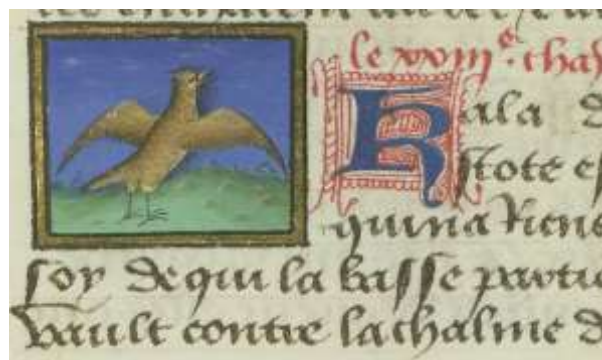 le xviij.e chap
Kala d
stote es
qui na riens
soy de qui la basse partie
vault contre la chalme d